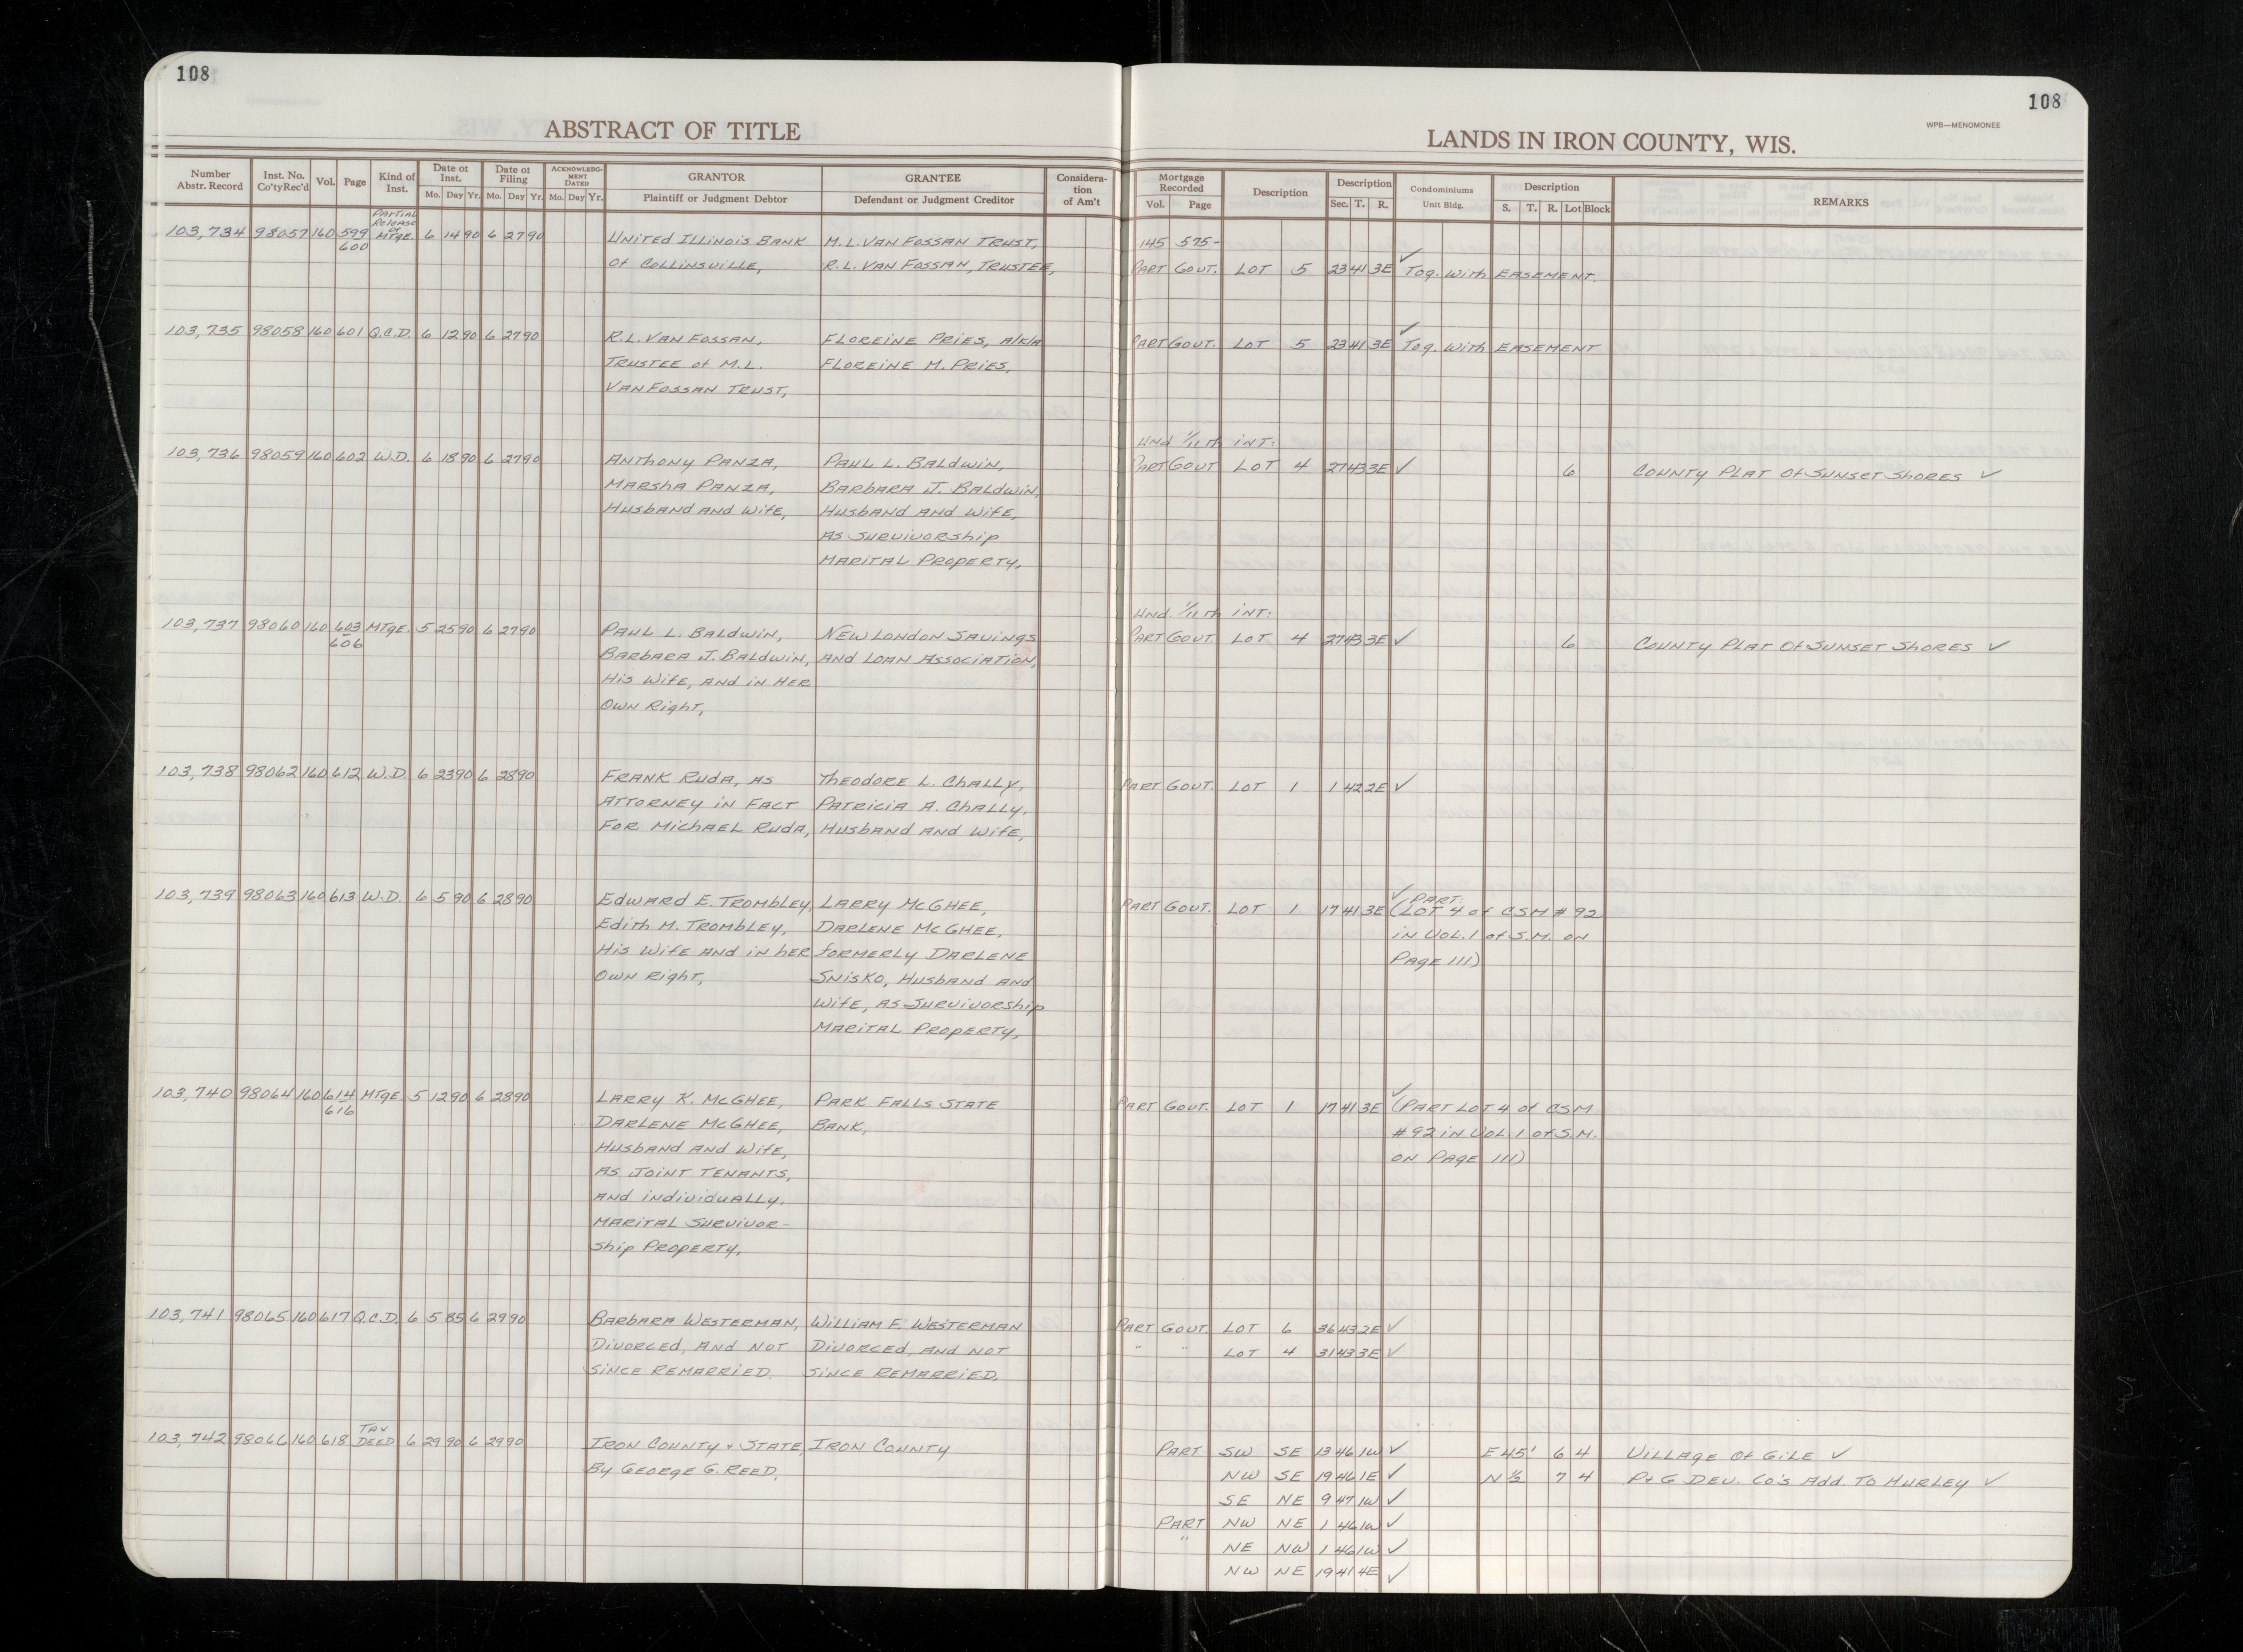 108
ABSTRACT OF TITLE
Number Abstr. Record | Inst. No. Co'ty Rec'd | Vol. | Page | Kind of Inst. | Date of Inst. Mo. Day Yr. | Date of Filing Mo. Day Yr. | ACKNOWLEDGMENT DATED Mo. Day Yr. | GRANTOR Plaintiff or Judgment Debtor | GRANTEE Defendant or Judgment Creditor | Consideration of Am't
103,734 98057 160 599 600 Partial Release of MTGE. 6 14 90 6 27 90 United Illinois Bank M.L. Van Fossan Trust,
of Collinsville, R.L. Van Fossan, Trustee,
103,735 98058 160 601 Q.C.D. 6 12 90 6 27 90 R.L. Van Fossan, Floreine Pries, a/k/a
Trustee of M.L. Floreine M. Pries,
Van Fossan Trust,
103,736 98059 160 602 W.D. 6 18 90 6 27 90 Anthony Panza, Paul L. Baldwin,
Marsha Panza, Barbara J. Baldwin,
Husband and Wife, Husband and Wife,
as Survivorship
Marital Property,
103,737 98060 160 603-606 MTGE. 5 25 90 6 27 90 Paul L. Baldwin, New London Savings
Barbara J. Baldwin, and Loan Association,
His Wife, and in Her
Own Right,
103,738 98062 160 612 W.D. 6 23 90 6 28 90 Frank Ruda, as Theodore L. Chally,
Attorney in Fact Patricia A. Chally,
For Michael Ruda, Husband and Wife,
103,739 98063 160 613 W.D. 6 5 90 6 28 90 Edward E. Trombley, Larry McGhee,
Edith M. Trombley, Darlene McGhee,
His Wife and in her formerly Darlene
Own Right, Snisko, Husband and
Wife, as Survivorship
Marital Property,
103,740 98064 160 614-616 MTGE. 5 12 90 6 28 90 Larry K. McGhee, Park Falls State
Darlene McGhee, Bank,
Husband and Wife,
as Joint Tenants,
and individually,
Marital Survivor-
ship Property,
103,741 98065 160 617 Q.C.D. 6 5 85 6 29 90 Barbara Westerman, William F. Westerman
Divorced, and not Divorced, and not
since remarried, since remarried,
103,742 98066 160 618 Tax Deed 6 29 90 6 29 90 Iron County & State, Iron County
By George G. Reed,
108
WPB—MENOMONEE
LANDS IN IRON COUNTY, WIS.
Mortgage Recorded Vol. Page | Description | Description Sec. T. R. | Condominiums Unit Bldg. | Description S. T. R. Lot Block | REMARKS
145 575-
Part Govt. Lot 5 23 41 3E ✓ Tog. with Easement.
Part Govt. Lot 5 23 41 3E ✓ Tog. with Easement
Und 1/11th int:
Part Govt Lot 4 27 43 3E ✓ 6 County Plat of Sunset Shores ✓
Und 1/11th int:
Part Govt Lot 4 27 43 3E ✓ 6 County Plat of Sunset Shores ✓
Part Govt. Lot 1 1 42 2E ✓
Part Govt. Lot 1 17 41 3E ✓ Part: (Lot 4 of CSM #92
in Vol. 1 of S.M. on
Page 111)
Part Govt. Lot 1 17 41 3E ✓ (Part Lot 4 of CSM
#92 in Vol 1 of S.M.
on Page 111)
Part Govt. Lot 6 36 43 2E ✓
" " Lot 4 31 43 3E ✓
Part SW SE 13 46 1W ✓ E 45' 6 4 Village of Gile ✓
NW SE 19 46 1E ✓ N ½ 7 4 P & G Dev. Co's Add. To Hurley ✓
SE NE 9 47 1W ✓
Part NW NE 1 46 1W ✓
" NE NW 1 46 1W ✓
NW NE 19 41 4E ✓